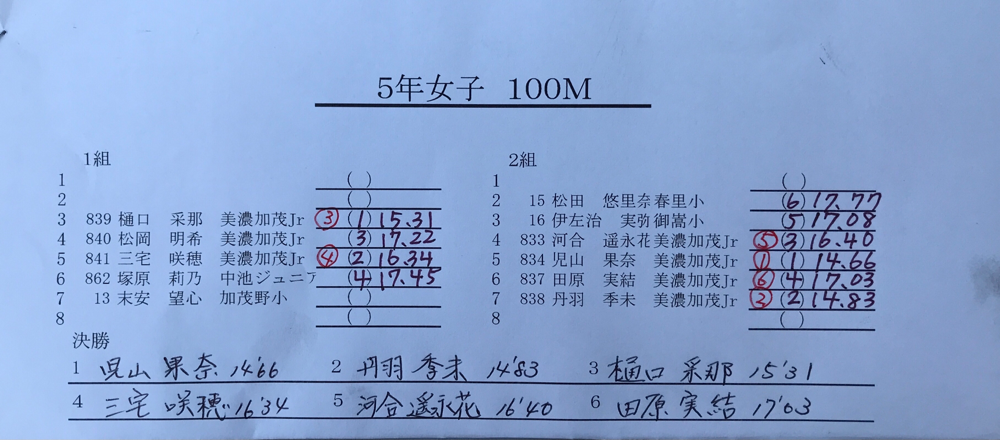 5年女子 100M
1組
1 ( )
2 ( )
3 839 樋口 采那 美濃加茂Jr ③ (1) 15.31
4 840 松岡 明希 美濃加茂Jr (3) 17.22
5 841 三宅 咲穂 美濃加茂Jr ④ (2) 16.34
6 862 塚原 莉乃 中池ジュニア (4) 17.45
7 13 末安 望心 加茂野小 ( )
8 ( )
2組
1 ( )
2 15 松田 悠里奈春里小 (6) 17.77
3 16 伊左治 実弥御嵩小 (5) 17.08
4 833 河合 遥永花美濃加茂Jr ⑤ (3) 16.40
5 834 児山 果奈 美濃加茂Jr ① (1) 14.66
6 837 田原 実結 美濃加茂Jr ⑥ (4) 17.03
7 838 丹羽 季未 美濃加茂Jr ② (2) 14.83
8 ( )
決勝
1 児山 果奈 14"66 2 丹羽 季未 14"83 3 樋口 采那 15"31
4 三宅 咲穂 16"34 5 河合遥永花 16"40 6 田原 実結 17"03